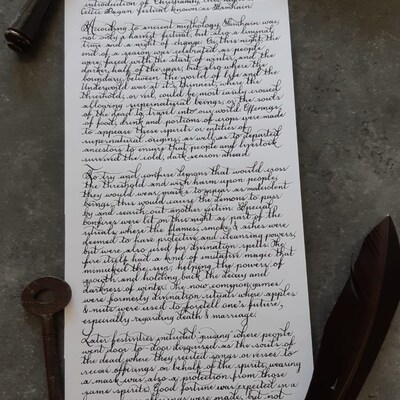 introduction of Christianity, was
Celtic Pagan festival known as Samhain.
According to ancient mythology, Samhain was
not only a harvest festival, but also a liminal
time and a night of change. On this night, the
end of a season was celebrated as people
were faced with the start of winter, and the
darker half of the year; but also where the
boundary between the world of life and the
Underworld was at it's thinnest, where the
threshold, or veil, could be most easily crossed
allowing supernatural beings, or the souls
of the dead to travel into our world. Offerings
of food, drink and portions of crops were made
to appease these spirits or entities of
supernatural origins, as well as to departed
ancestors to ensure that people and livestock
survived the cold, dark season ahead.
To try and confuse demons that would cross
the threshold and wish harm upon people,
they would wear masks to appear as malevolent
beings; this would cause the demons to pass
by and search out another victim. Special
bonfires were lit on this night as part of the
rituals, where the flames, smoke & ashes were
deemed to have protective and cleansing powers,
but were also used for divination spells. The
fire itself had a kind of imitative magic that
mimicked the sun, helping the powers of
growth and holding back the decay and
darkness of winter. The now common games
were formerly divination rituals where apples
& nuts were used to foretell one's future,
especially regarding death & marriage.
Later festivities included guising where people
went door to door disguised as the souls of
the dead, where they recited songs or verses to
receive offerings on behalf of the spirits; wearing
a mask was also a protection from those
same spirits. Good fortune was expected in a
were made, but not